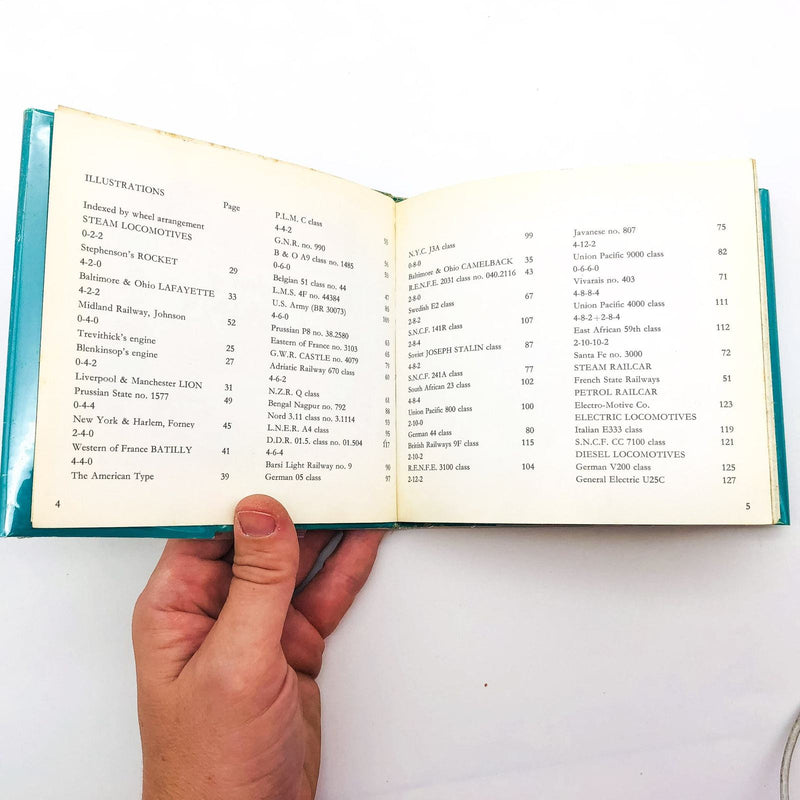 ILLUSTRATIONS
Page
Indexed by wheel arrangement
STEAM LOCOMOTIVES
0-2-2
Stephenson's ROCKET 29
4-2-0
Baltimore & Ohio LAFAYETTE 33
4-2-2
Midland Railway, Johnson 52
0-4-0
Trevithick's engine 25
Blenkinsop's engine 27
0-4-2
Liverpool & Manchester LION 31
Prussian State no. 1577 49
0-4-4
New York & Harlem, Forney 45
2-4-0
Western of France BATILLY 41
4-4-0
The American Type 39
4
P.L.M. C class 55
4-4-2
G.N.R. no. 990 56
B & O A9 class no. 1485 53
0-6-0
Belgian 51 class no. 44 47
L.M.S. 4F no. 44384
U.S. Army (BR 30073) 105
4-6-0
Prussian P8 no. 38.2580 63
Eastern of France no. 3103 65
G.W.R. CASTLE no. 4079
Adriatic Railway 670 class 60
4-6-2
N.Z.R. Q class 61
Bengal Nagpur no. 792 88
Nord 3.11 class no. 3.1114 93
L.N.E.R. A4 class 95
D.D.R. 01.5. class no. 01.504 117
4-6-4
Barsi Light Railway no. 9 90
German 05 class 97
N.Y.C. J3A class 99
0-8-0
Baltimore & Ohio CAMELBACK 35
R.E.N.F.E. 2031 class no. 040.2116 43
2-8-0
Swedish E2 class 67
2-8-2
S.N.C.F. 141R class 107
2-8-4
Soviet JOSEPH STALIN class 87
4-8-2
S.N.C.F. 241A class 77
South African 23 class 102
4-8-4
Union Pacific 800 class 100
2-10-0
German 44 class 80
British Railways 9F class 115
2-10-2
R.E.N.F.E. 3100 class 104
2-12-2
Javanese no. 807 75
4-12-2
Union Pacific 9000 class 82
0-6-6-0
Vivarais no. 403 71
4-8-8-4
Union Pacific 4000 class 111
4-8-2+2-8-4
East African 59th class 112
2-10-10-2
Santa Fe no. 3000 72
STEAM RAILCAR
French State Railways 51
PETROL RAILCAR
Electro-Motive Co. 123
ELECTRIC LOCOMOTIVES
Italian E333 class 119
S.N.C.F. CC 7100 class 121
DIESEL LOCOMOTIVES
German V200 class 125
General Electric U25C 127
5